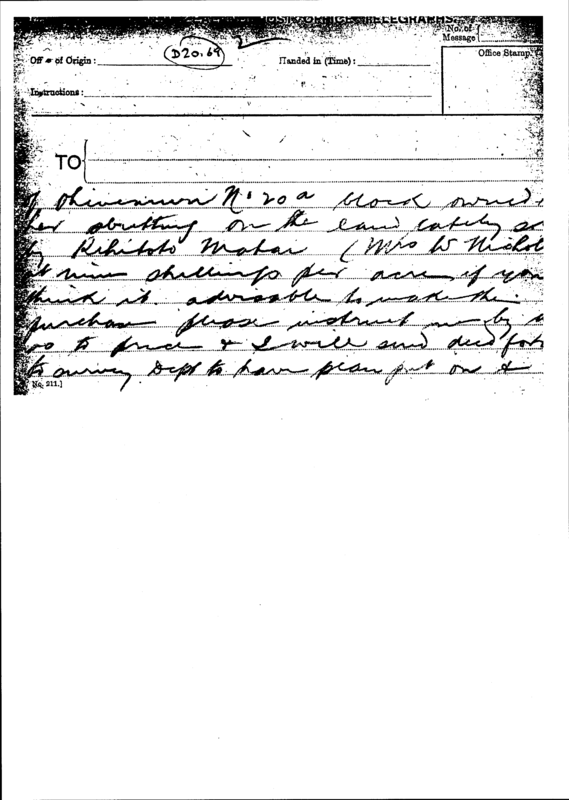 POST OFFICE TELEGRAPHS.
No. of Message
Office Stamp.
D20.69 2
Office of Origin:
Handed in (Time):
Instructions:
TO
of No 20a block owned
her abutting on the land lately
by Rihitoto Mataia (Mrs W Nichol
at nine shillings per acre, if you
think it advisable to make the
purchase please instruct me by
as to price & I will send deed
to survey Dept to have plan put on &
No. 211.]